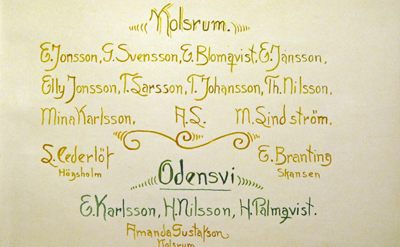 Kolsrum.
E. Jonsson, G. Svensson, E. Blomqvist, E. Jansson,
Elly Jonsson, T. Larsson, T. Johansson, Th. Nilsson.
Mina Karlsson, A.S. M. Lindström.
S. Cederlöf E. Branting
Högsholm Skansen
Odensvi
E. Karlsson, H. Nilsson, H. Palmqvist.
Amanda Gustafson
Kolsrum